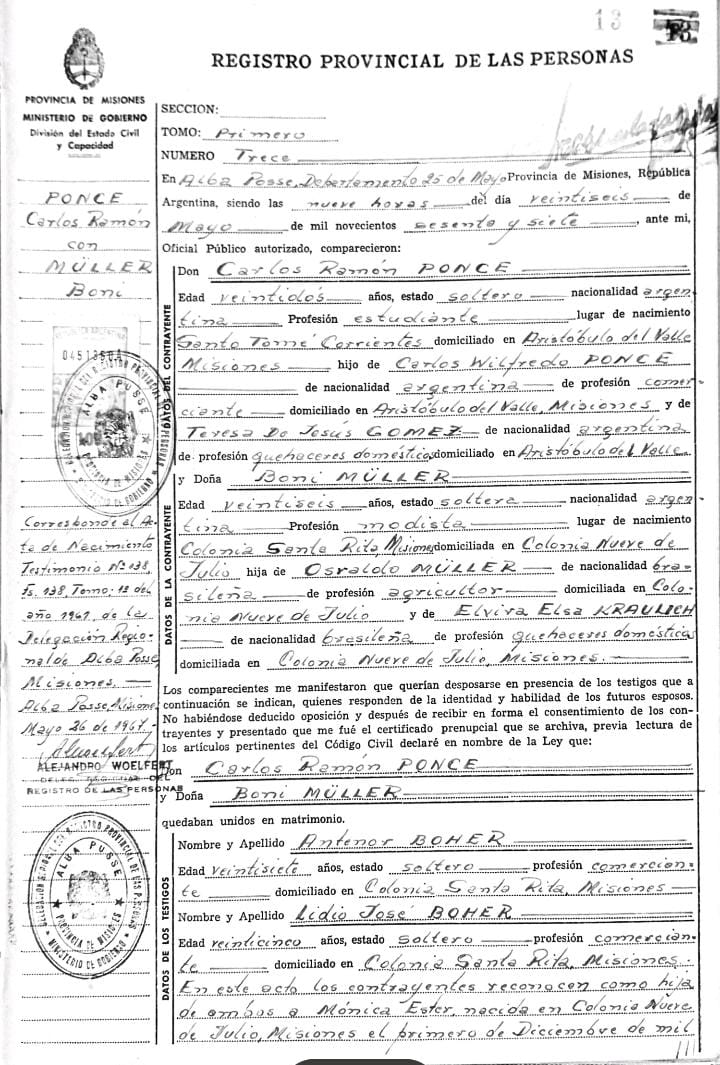 13
13
REGISTRO PROVINCIAL DE LAS PERSONAS
PROVINCIA DE MISIONES
MINISTERIO DE GOBIERNO
División del Estado Civil
y Capacidad
PONCE
Carlos Ramón
con
MÜLLER
Boni
ALBA POSSE
PROVINCIA DE MISIONES
MINISTERIO DE GOBIERNO
Corresponde al Ac-
ta de Nacimiento
Testimonio Nº 138
Fs. 138, Tomo: 1º del
año 1961, de la
Delegación Regio-
nal de Alba Posse
Misiones.
Alba Posse, Misiones
Mayo 26 de 1967.
ALEJANDRO WOELFERT
DELEG. REGIONAL DEL
REGISTRO DE LAS PERSONAS
DELEGACION REGIONAL DEL REGISTRO PROVINCIAL DE LAS PERSONAS
ALBA POSSE
PROVINCIA DE MISIONES
MINISTERIO DE GOBIERNO
SECCION:
TOMO: Primero
NUMERO Trece
En Alba Posse, Departamento 25 de Mayo Provincia de Misiones, República
Argentina, siendo las nueve horas del día veintiseis de
Mayo de mil novecientos sesenta y siete, ante mi,
Oficial Público autorizado, comparecieron:
DATOS DEL CONTRAYENTE
Don Carlos Ramón PONCE
Edad veintidós años, estado soltero nacionalidad argen-
tina Profesión estudiante lugar de nacimiento
Santo Tomé Corrientes domiciliado en Aristóbulo del Valle
Misiones hijo de Carlos Wilfredo PONCE
de nacionalidad argentina de profesión comer-
ciante domiciliado en Aristóbulo del Valle, Misiones y de
Teresa De Jesús GOMEZ de nacionalidad argentina
de profesión quehaceres domésticos domiciliado en Aristóbulo del Valle.
y Doña Boni MÜLLER
DATOS DE LA CONTRAYENTE
Edad veintiseis años, estado soltera nacionalidad argen-
tina Profesión modista lugar de nacimiento
Colonia Santa Rita Misiones domiciliada en Colonia Nueve de
Julio hija de Osvaldo MÜLLER de nacionalidad bra-
sileña de profesión agricultor domiciliada en Colo-
nia Nueve de Julio y de Elvira Elsa KRAULICH
de nacionalidad brasileña de profesión quehaceres domésticos
domiciliada en Colonia Nueve de Julio, Misiones.
Los comparecientes me manifestaron que querían desposarse en presencia de los testigos que a
continuación se indican, quienes responden de la identidad y habilidad de los futuros esposos.
No habiéndose deducido oposición y después de recibir en forma el consentimiento de los con-
trayentes y presentado que me fué el certificado prenupcial que se archiva, previa lectura de
los artículos pertinentes del Código Civil declaré en nombre de la Ley que:
Don Carlos Ramón PONCE
y Doña Boni MÜLLER
quedaban unidos en matrimonio.
DATOS DE LOS TESTIGOS
Nombre y Apellido Antenor BOHER
Edad veintisiete años, estado soltero profesión comercian-
te domiciliado en Colonia Santa Rita, Misiones
Nombre y Apellido Lidio José BOHER
Edad veinticinco años, estado soltero profesión comercian-
te domiciliado en Colonia Santa Rita, Misiones.
En este acto los contrayentes reconocen como hija
de ambos a Mónica Ester, nacida en Colonia Nueve
de Julio, Misiones el primero de Diciembre de mil
///